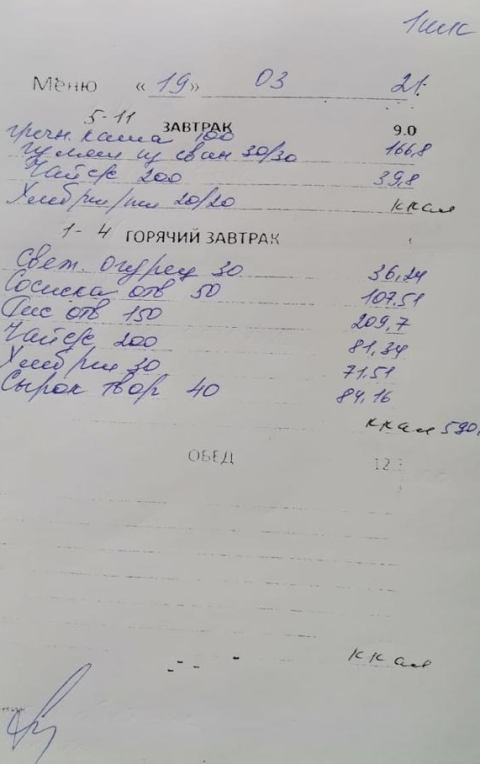 1 шк
Меню «19» 03 21.
5-11 ЗАВТРАК 9.0
Гречн. каша 100
гуляш из свин 30/30 166,8
Чай с/с 200 39,8
Хлеб рж/пш 20/20 ккал
1-4 ГОРЯЧИЙ ЗАВТРАК
Свеж. огурец 30 36,24
Сосиска отв 50 107.51
Рис отв 150 209,7
Чай с/с 200 81,34
Хлеб рж 30 71.51
Сырок твор 40 84,16
ккал 590,
ОБЕД 12.
ккал